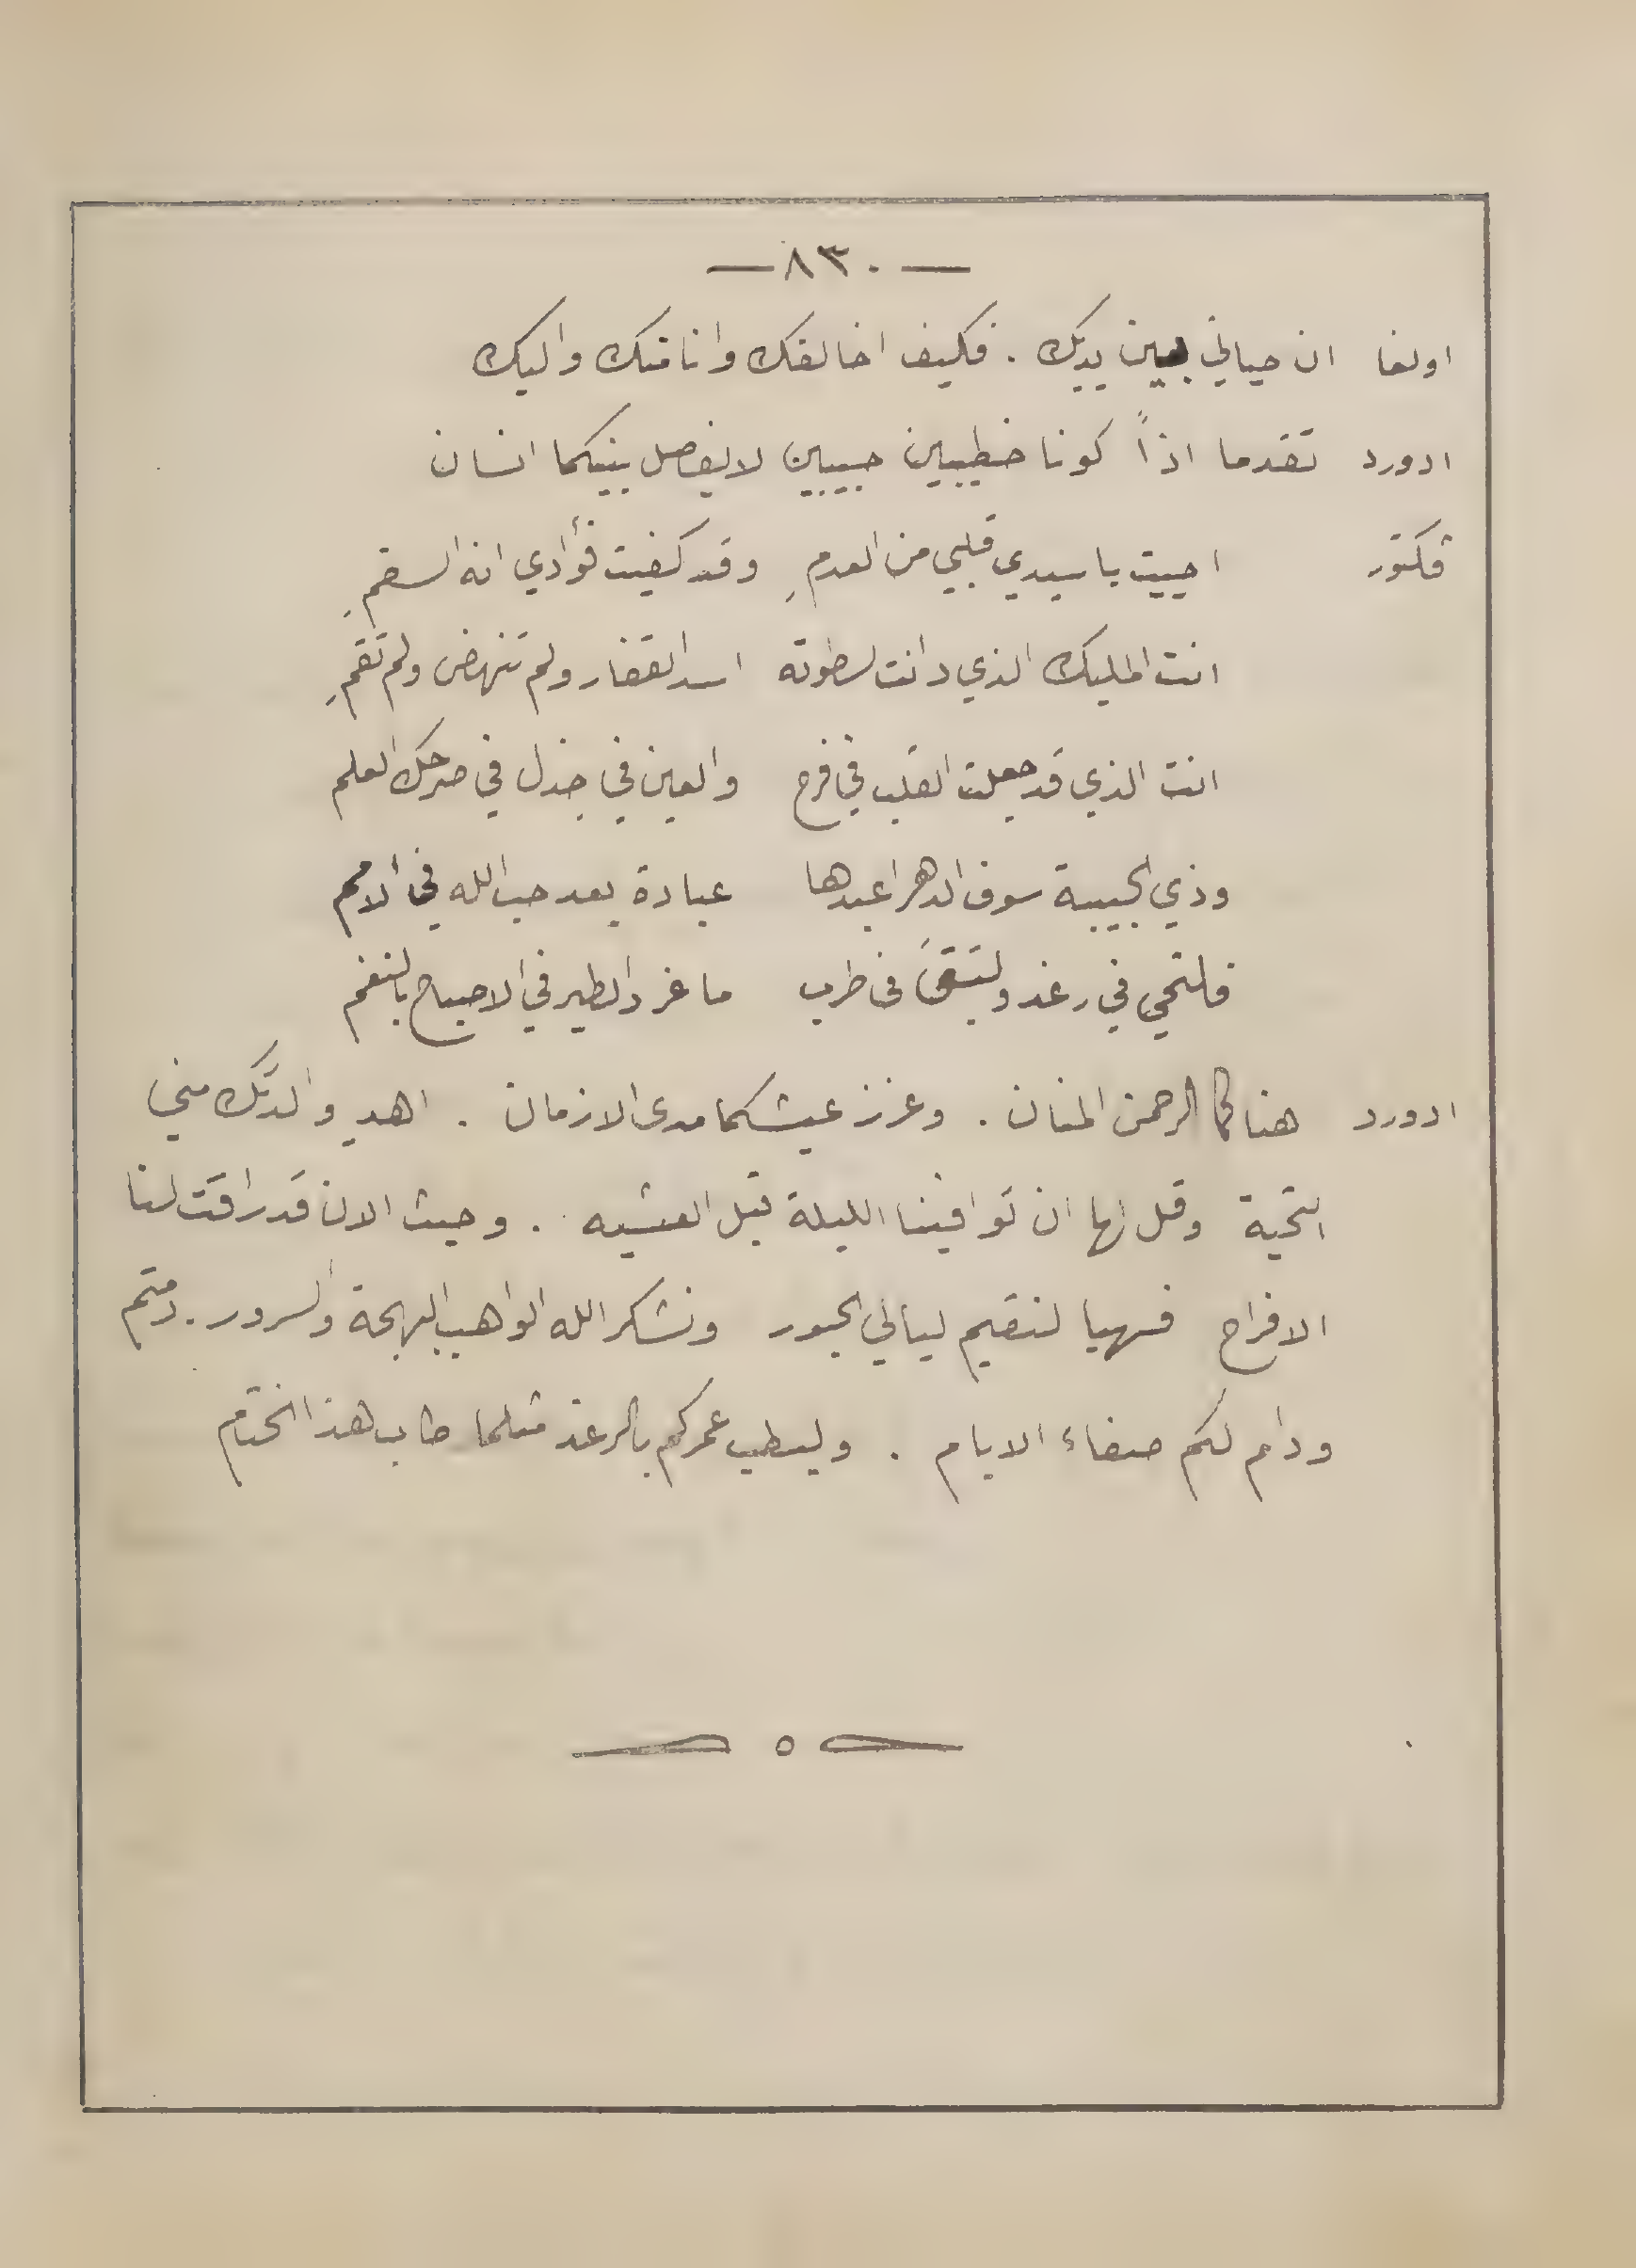 — ٨٣٠ —
اولغا ان حياتي بين يديك . فكيف اخالفك وانا منك واليك
ادورد تقدما اذاً كونا خطيبين حبيبين لا يفصل بينكما انسان
فكتور احييت يا سيدي قلبي من العدمِ وقد كفيت فؤادي انه السقمِ
انت المليك الذي دانت لسطوته اسد القفار ولم تنهض ولم تقمِ
انت الذي قد جعلت القلب في فرح والعين في جذل في صرحك العلم
وذي الحبيبة سوف الدهر اعبدها عبادة بعد حب الله في الامم
فلتحي في رغد ولتبقَ في طرب ما غرد الطير في الاصباح بالنغم
ادورد هناكما الرحمن المنان . وعزز عيشكما مدى الازمان . اهدِ والدتك مني
التحية وقل لها ان توافينا الليلة قبل العشيه . وحيث الان قد راقت لنا
الافراح فهيا لنقيم ليالي الحبور ونشكر الله الواهب البهجة والسرور . دمتم
ودام لكم صفاء الايام . وليطب عمركم بالرغد مثلما طاب هذا الختام